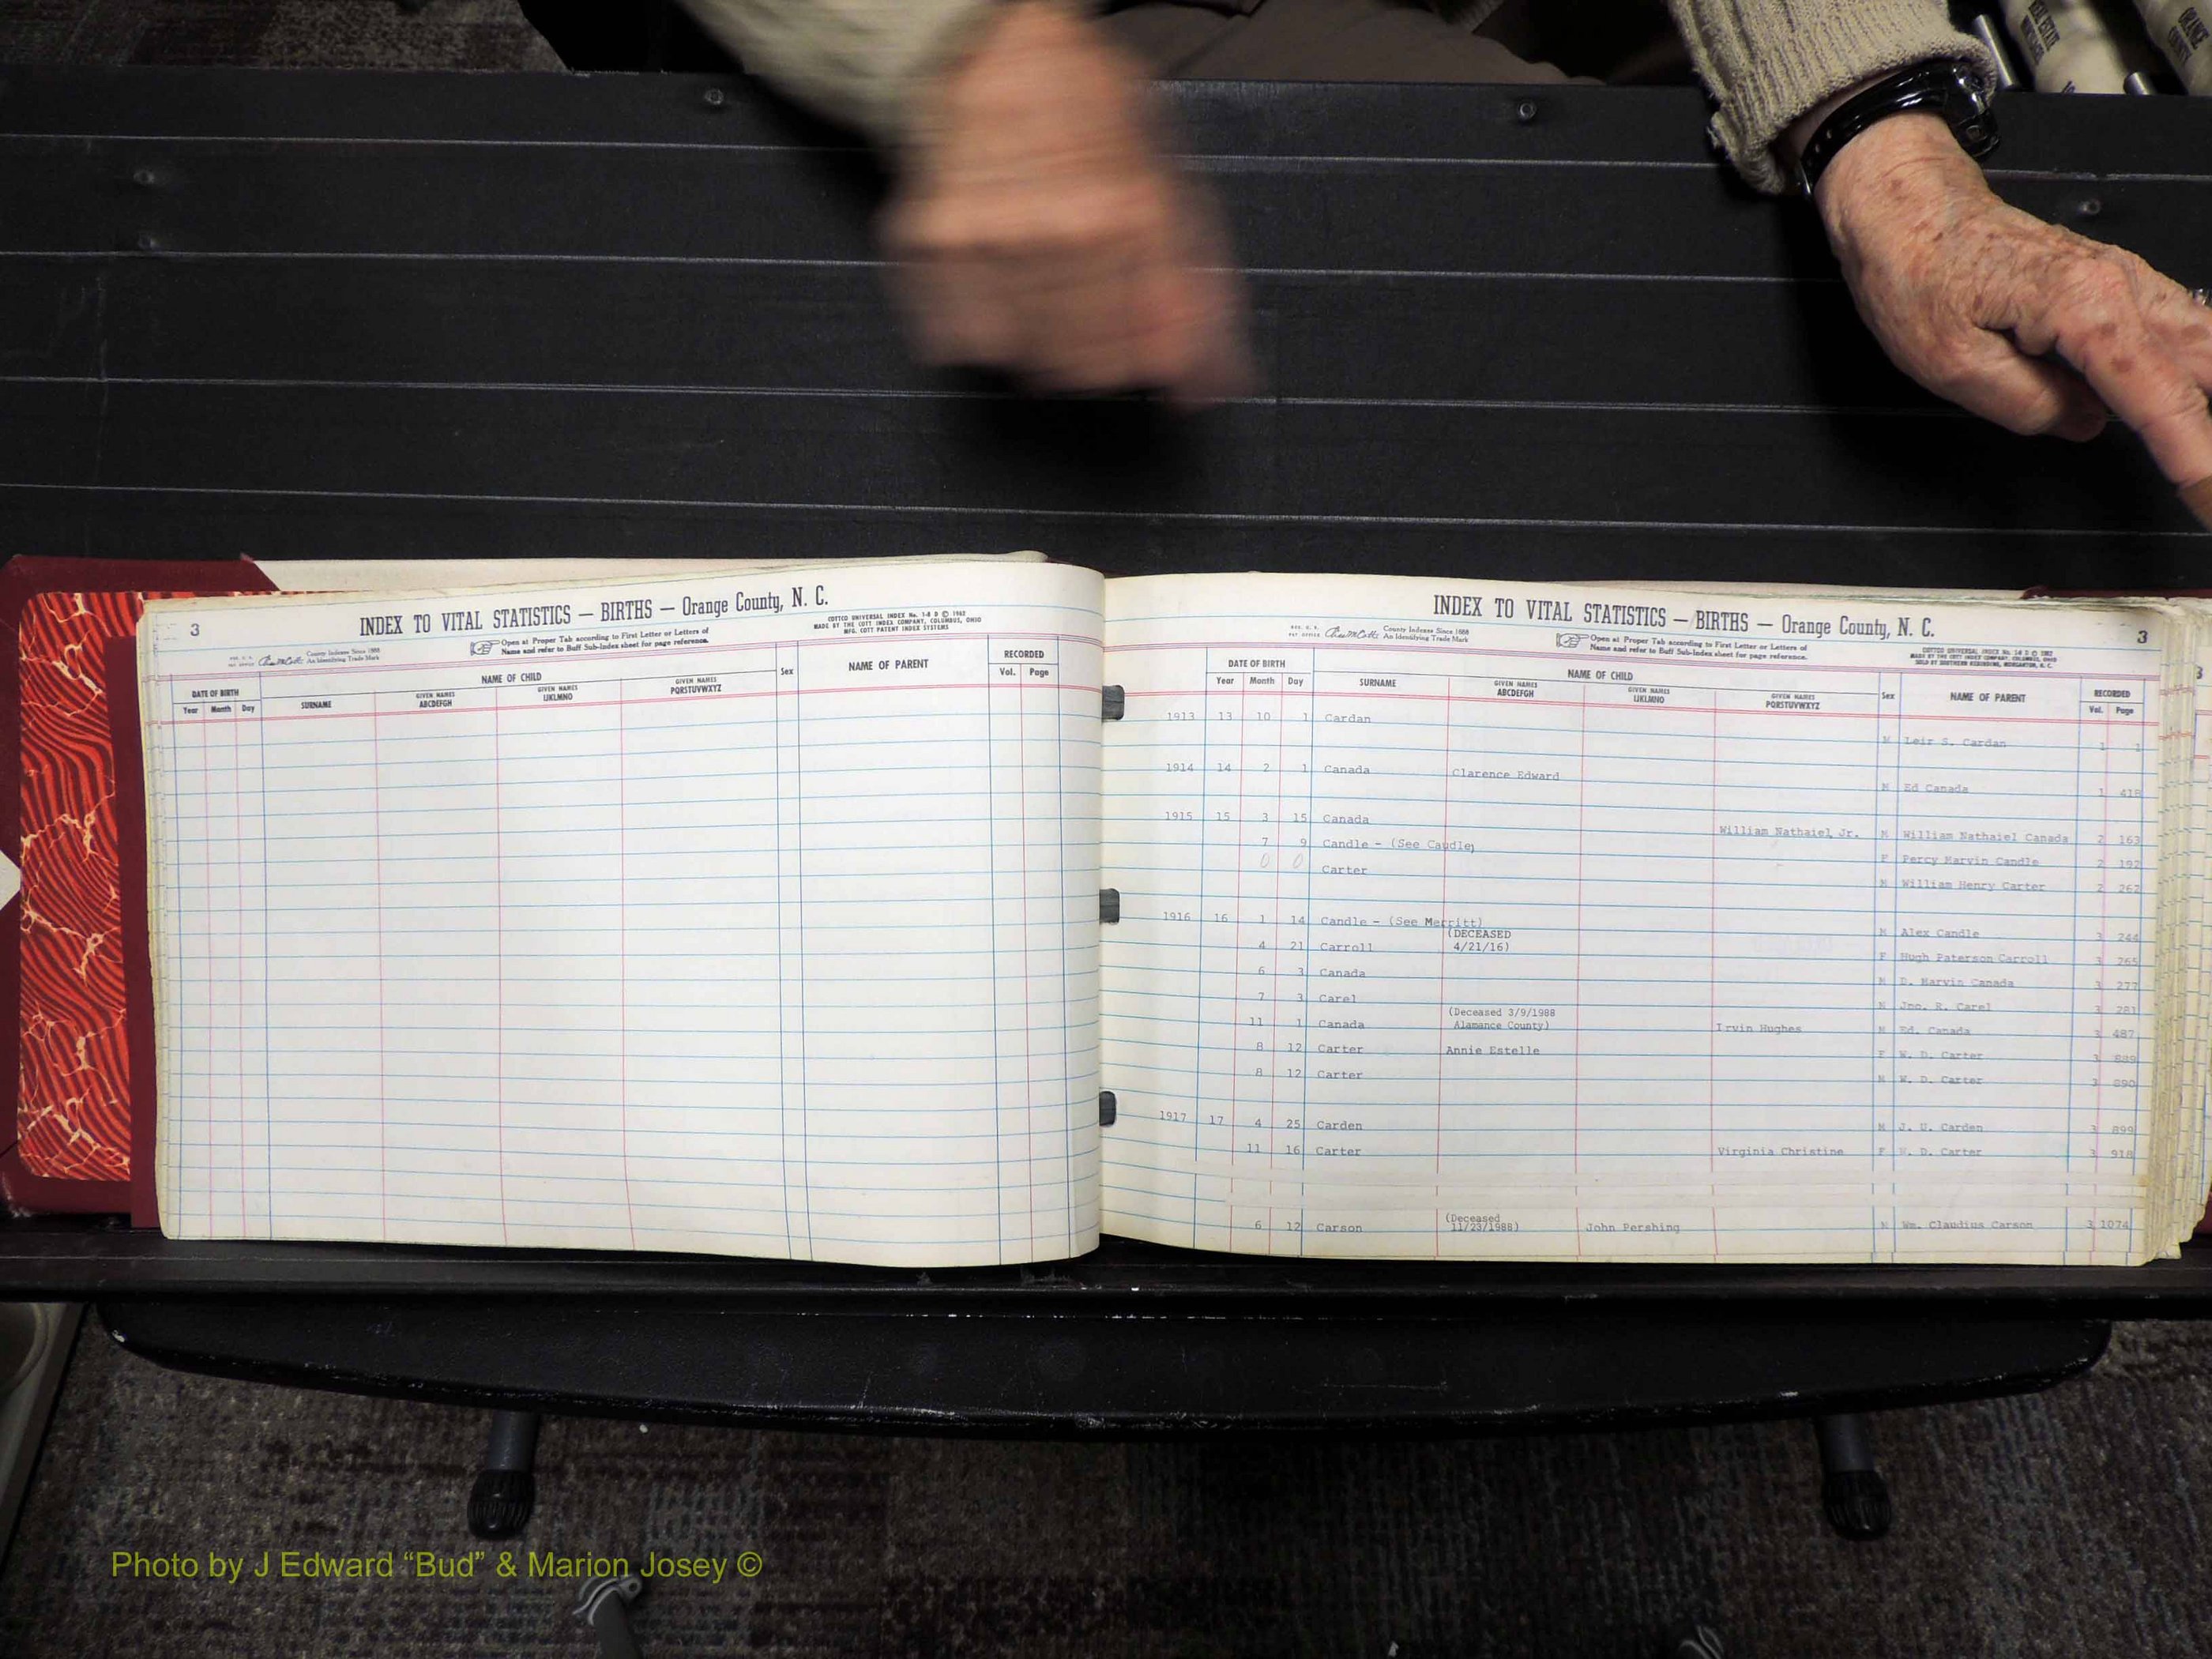 REAL ESTATE
ORANGE
3
INDEX TO VITAL STATISTICS — BIRTHS — Orange County, N. C.
COTTCO UNIVERSAL INDEX No. 1-8 D © 1962
MADE BY THE COTT INDEX COMPANY, COLUMBUS, OHIO
MFG. COTT PATENT INDEX SYSTEMS
County Indexes Since 1888
An Identifying Trade Mark
Open at Proper Tab according to First Letter or Letters of
Name and refer to Buff Sub-Index sheet for page reference.
DATE OF BIRTH NAME OF CHILD Sex NAME OF PARENT RECORDED
Year Month Day SURNAME GIVEN NAMES ABCDEFGH GIVEN NAMES IJKLMNO GIVEN NAMES PQRSTUVWXYZ Vol. Page
INDEX TO VITAL STATISTICS — BIRTHS — Orange County, N. C.
3
County Indexes Since 1888
An Identifying Trade Mark
Open at Proper Tab according to First Letter or Letters of
Name and refer to Buff Sub-Index sheet for page reference.
DATE OF BIRTH NAME OF CHILD Sex NAME OF PARENT RECORDED
Year Month Day SURNAME GIVEN NAMES ABCDEFGH GIVEN NAMES IJKLMNO GIVEN NAMES PQRSTUVWXYZ Vol. Page
1913 13 10 1 Cardan M Leir S. Cardan 1 1
1914 14 2 1 Canada Clarence Edward M Ed Canada 1 418
1915 15 3 15 Canada William Nathaiel Jr. M William Nathaiel Canada 2 163
7 9 Candle - (See Caudle) F Percy Marvin Candle 2 192
0 0 Carter M William Henry Carter 2 262
1916 16 1 14 Candle - (See Merritt) M Alex Candle 3 244
4 21 Carroll (DECEASED 4/21/16) F Hugh Paterson Carroll 3 265
6 3 Canada M D. Marvin Canada 3 277
7 3 Carel M Jno. R. Carel 3 281
11 1 Canada (Deceased 3/9/1988 Alamance County) Irvin Hughes M Ed. Canada 3 487
8 12 Carter Annie Estelle F W. D. Carter 3 889
8 12 Carter M W. D. Carter 3 890
1917 17 4 25 Carden M J. U. Carden 3 899
11 16 Carter Virginia Christine F W. D. Carter 3 918
6 12 Carson (Deceased 11/23/1988) John Pershing M Wm. Claudius Carson 3 1074
Photo by J Edward “Bud” & Marion Josey ©